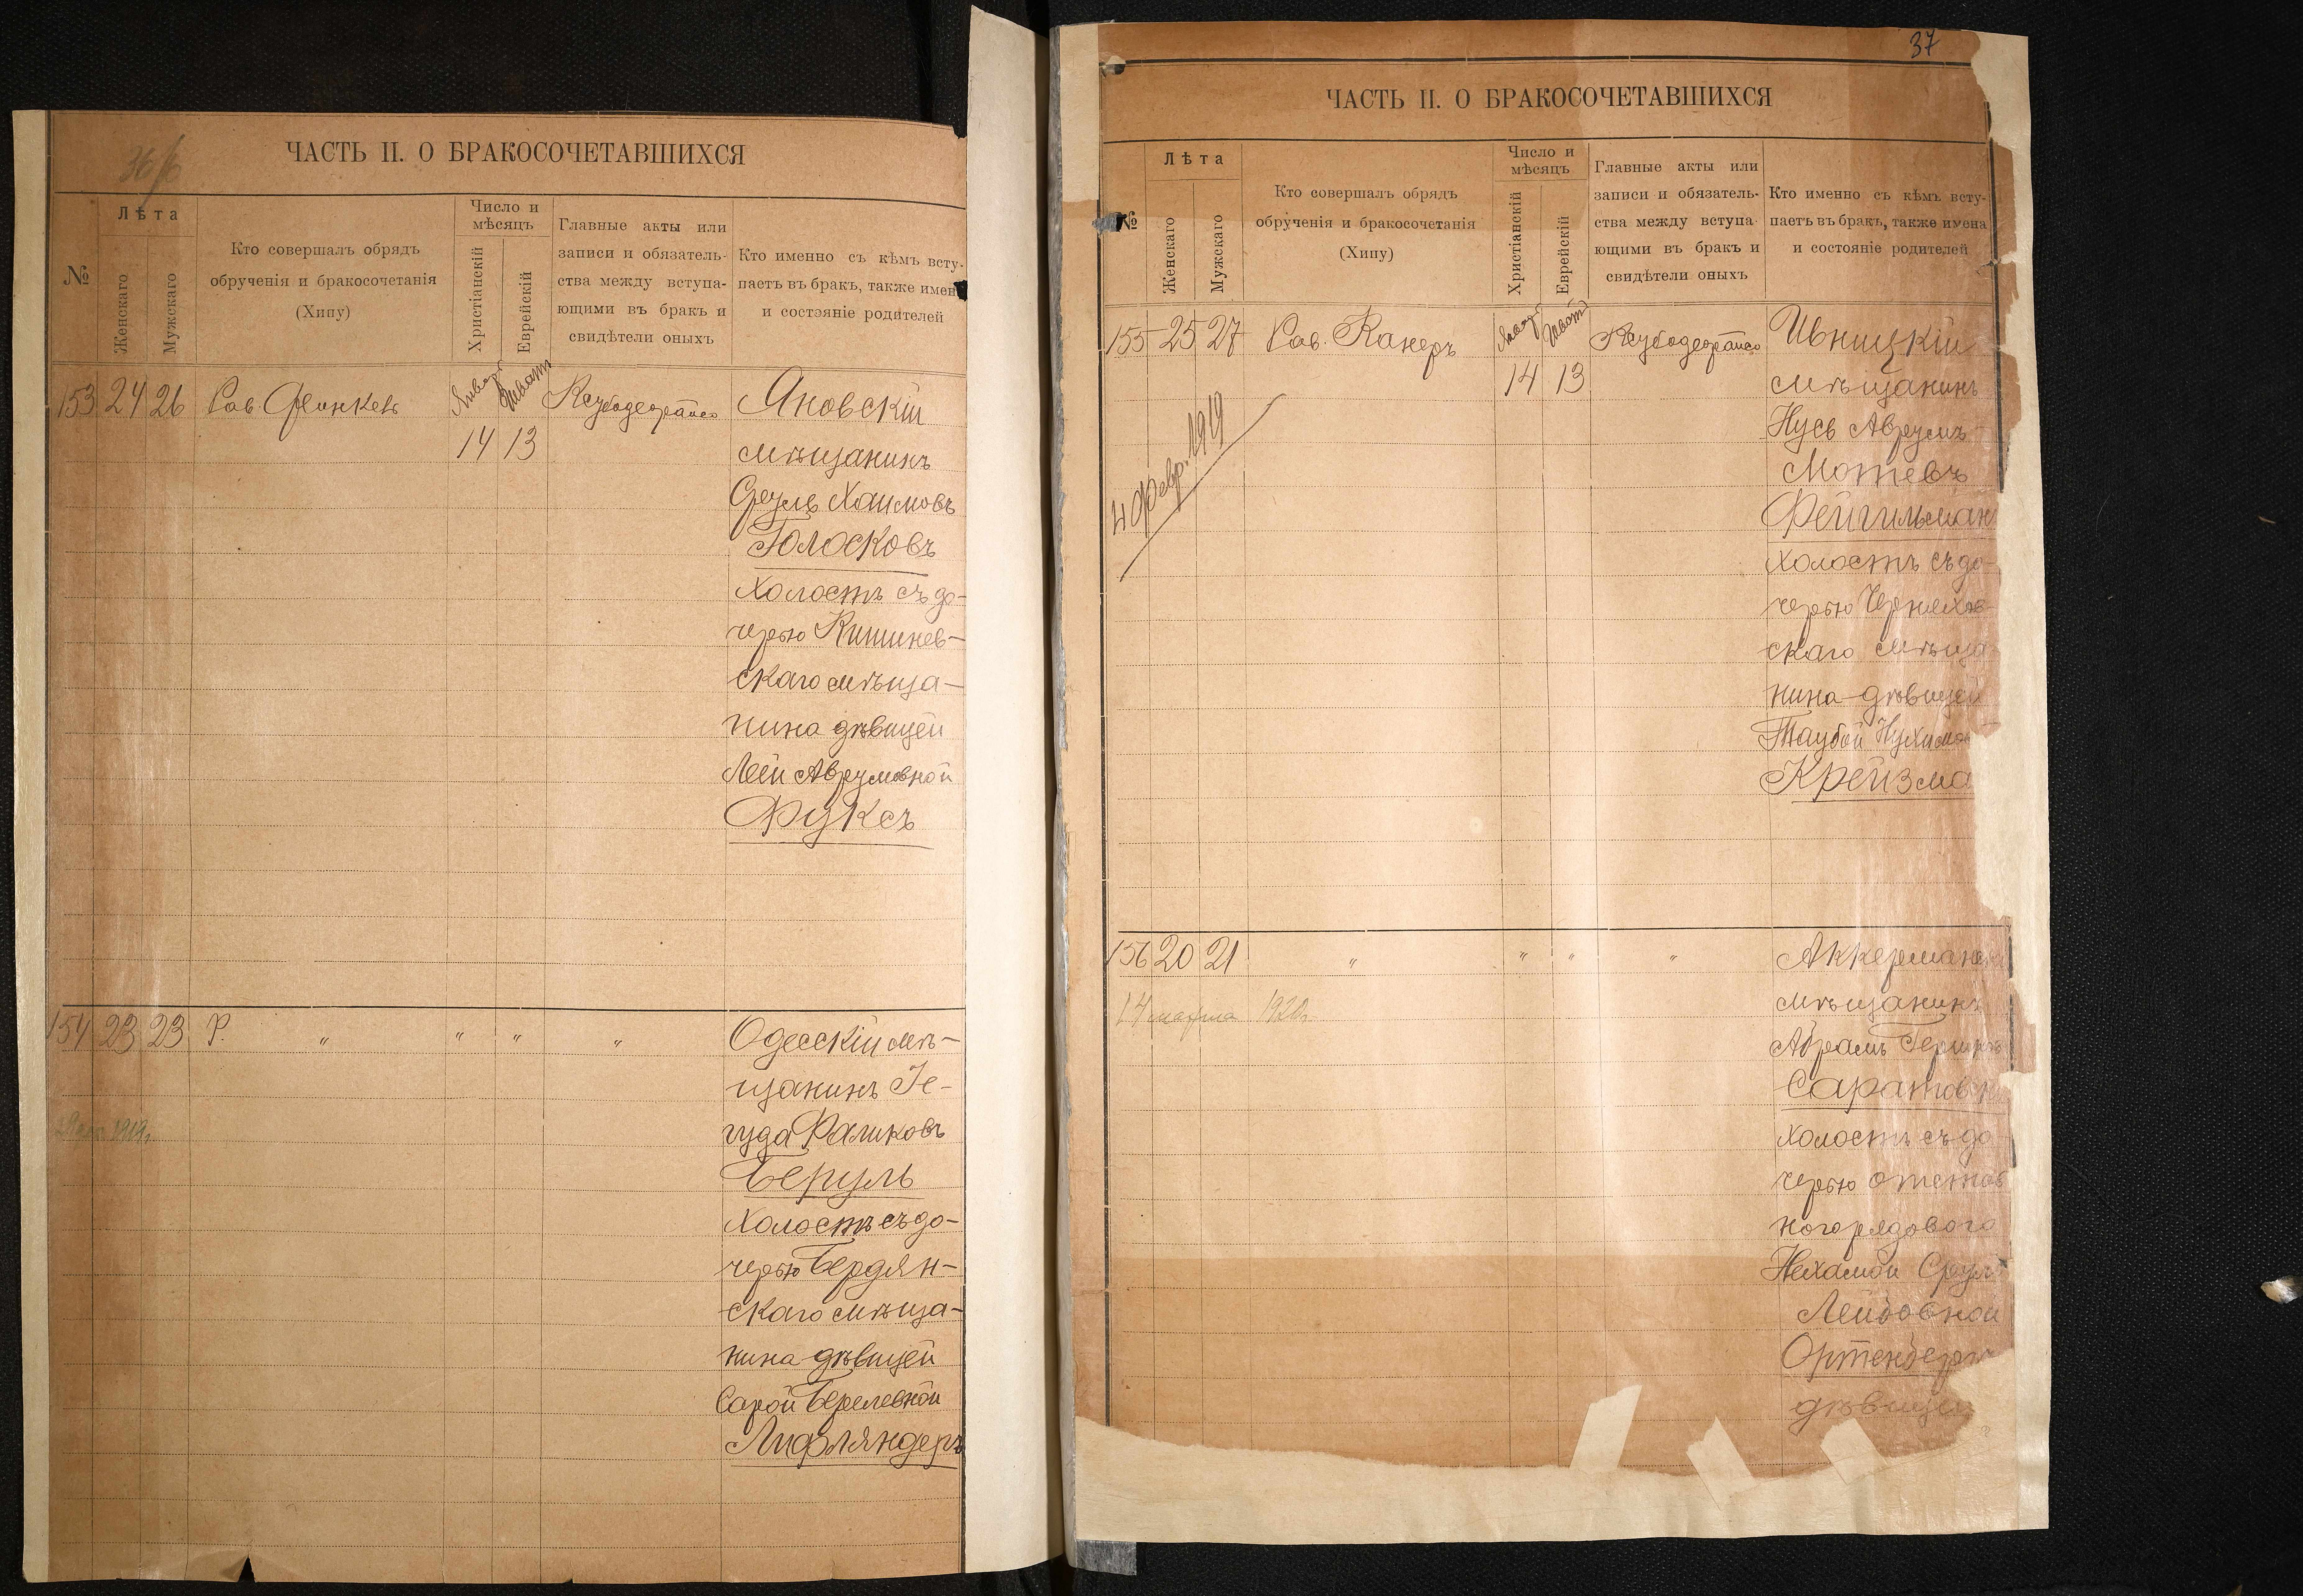 36/б
ЧАСТЬ II. О БРАКОСОЧЕТАВШИХСЯ
№
Лѣта
Женскаго
Мужскаго
Кто совершалъ обрядъ
обрученія и бракосочетанія
(Хипу)
Число и
мѣсяцъ
Христіанскій
Еврейскій
Главные акты или
записи и обязатель-
ства между вступа-
ющими въ бракъ и
свидѣтели оныхъ
Кто именно съ кѣмъ всту-
паетъ въ бракъ, также имен
и состояніе родителей
153 24 26 Рав. Финкель Январ Шват Ксубодеорайсо Яновскій
14 13 мѣщанинъ
Сруль Хаимовъ
Голосковъ
Холостъ съ до-
черью Кишинев-
скаго мѣща-
нина дѣвицей
Леей Аврумовной
Фуксъ
154 23 23 Р. " " " " Одесскій мѣ-
щанинъ Іе-
гуда Фаликовъ
1919г.
Беруль
Холостъ съ до-
черью Бердян-
скаго мѣща-
нина дѣвицей
Сарой Берелевной
Лифляндеръ
37
ЧАСТЬ II. О БРАКОСОЧЕТАВШИХСЯ
№
Лѣта
Женскаго
Мужскаго
Кто совершалъ обрядъ
обрученія и бракосочетанія
(Хипу)
Число и
мѣсяцъ
Христіанскій
Еврейскій
Главные акты или
записи и обязатель-
ства между вступа-
ющими въ бракъ и
свидѣтели оныхъ
Кто именно съ кѣмъ всту-
паетъ въ бракъ, также имена
и состояніе родителей
155 25 27 Рав. Канеръ Январ Шват Ксубодеорайсо Ивницкій
14 13 мѣщанинъ
4 февр. 1919
Нусь Аврумъ
Мотевъ
Фейгильман
Холостъ съ до-
черью Черняхов-
скаго мѣща-
нина дѣвицей
Таубой Нухимов
Крейзма
156 20 21 " " " " Аккерманск
14 марта 1920г. мѣщанинъ
Абрамъ Гершковъ
Саратовск
Холостъ съ до-
черью отстав
ного рядового
Нехамой Срул-
Лейбовной
Ортенбергъ
дѣвицей